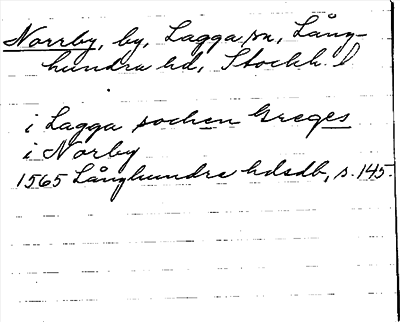 Norrby, by, Lagga sn, Lång-
hundra hd, Stockh. l
i Lagga sochen Greges
i Norby
1565 Långhundra hdsdb, s. 145.